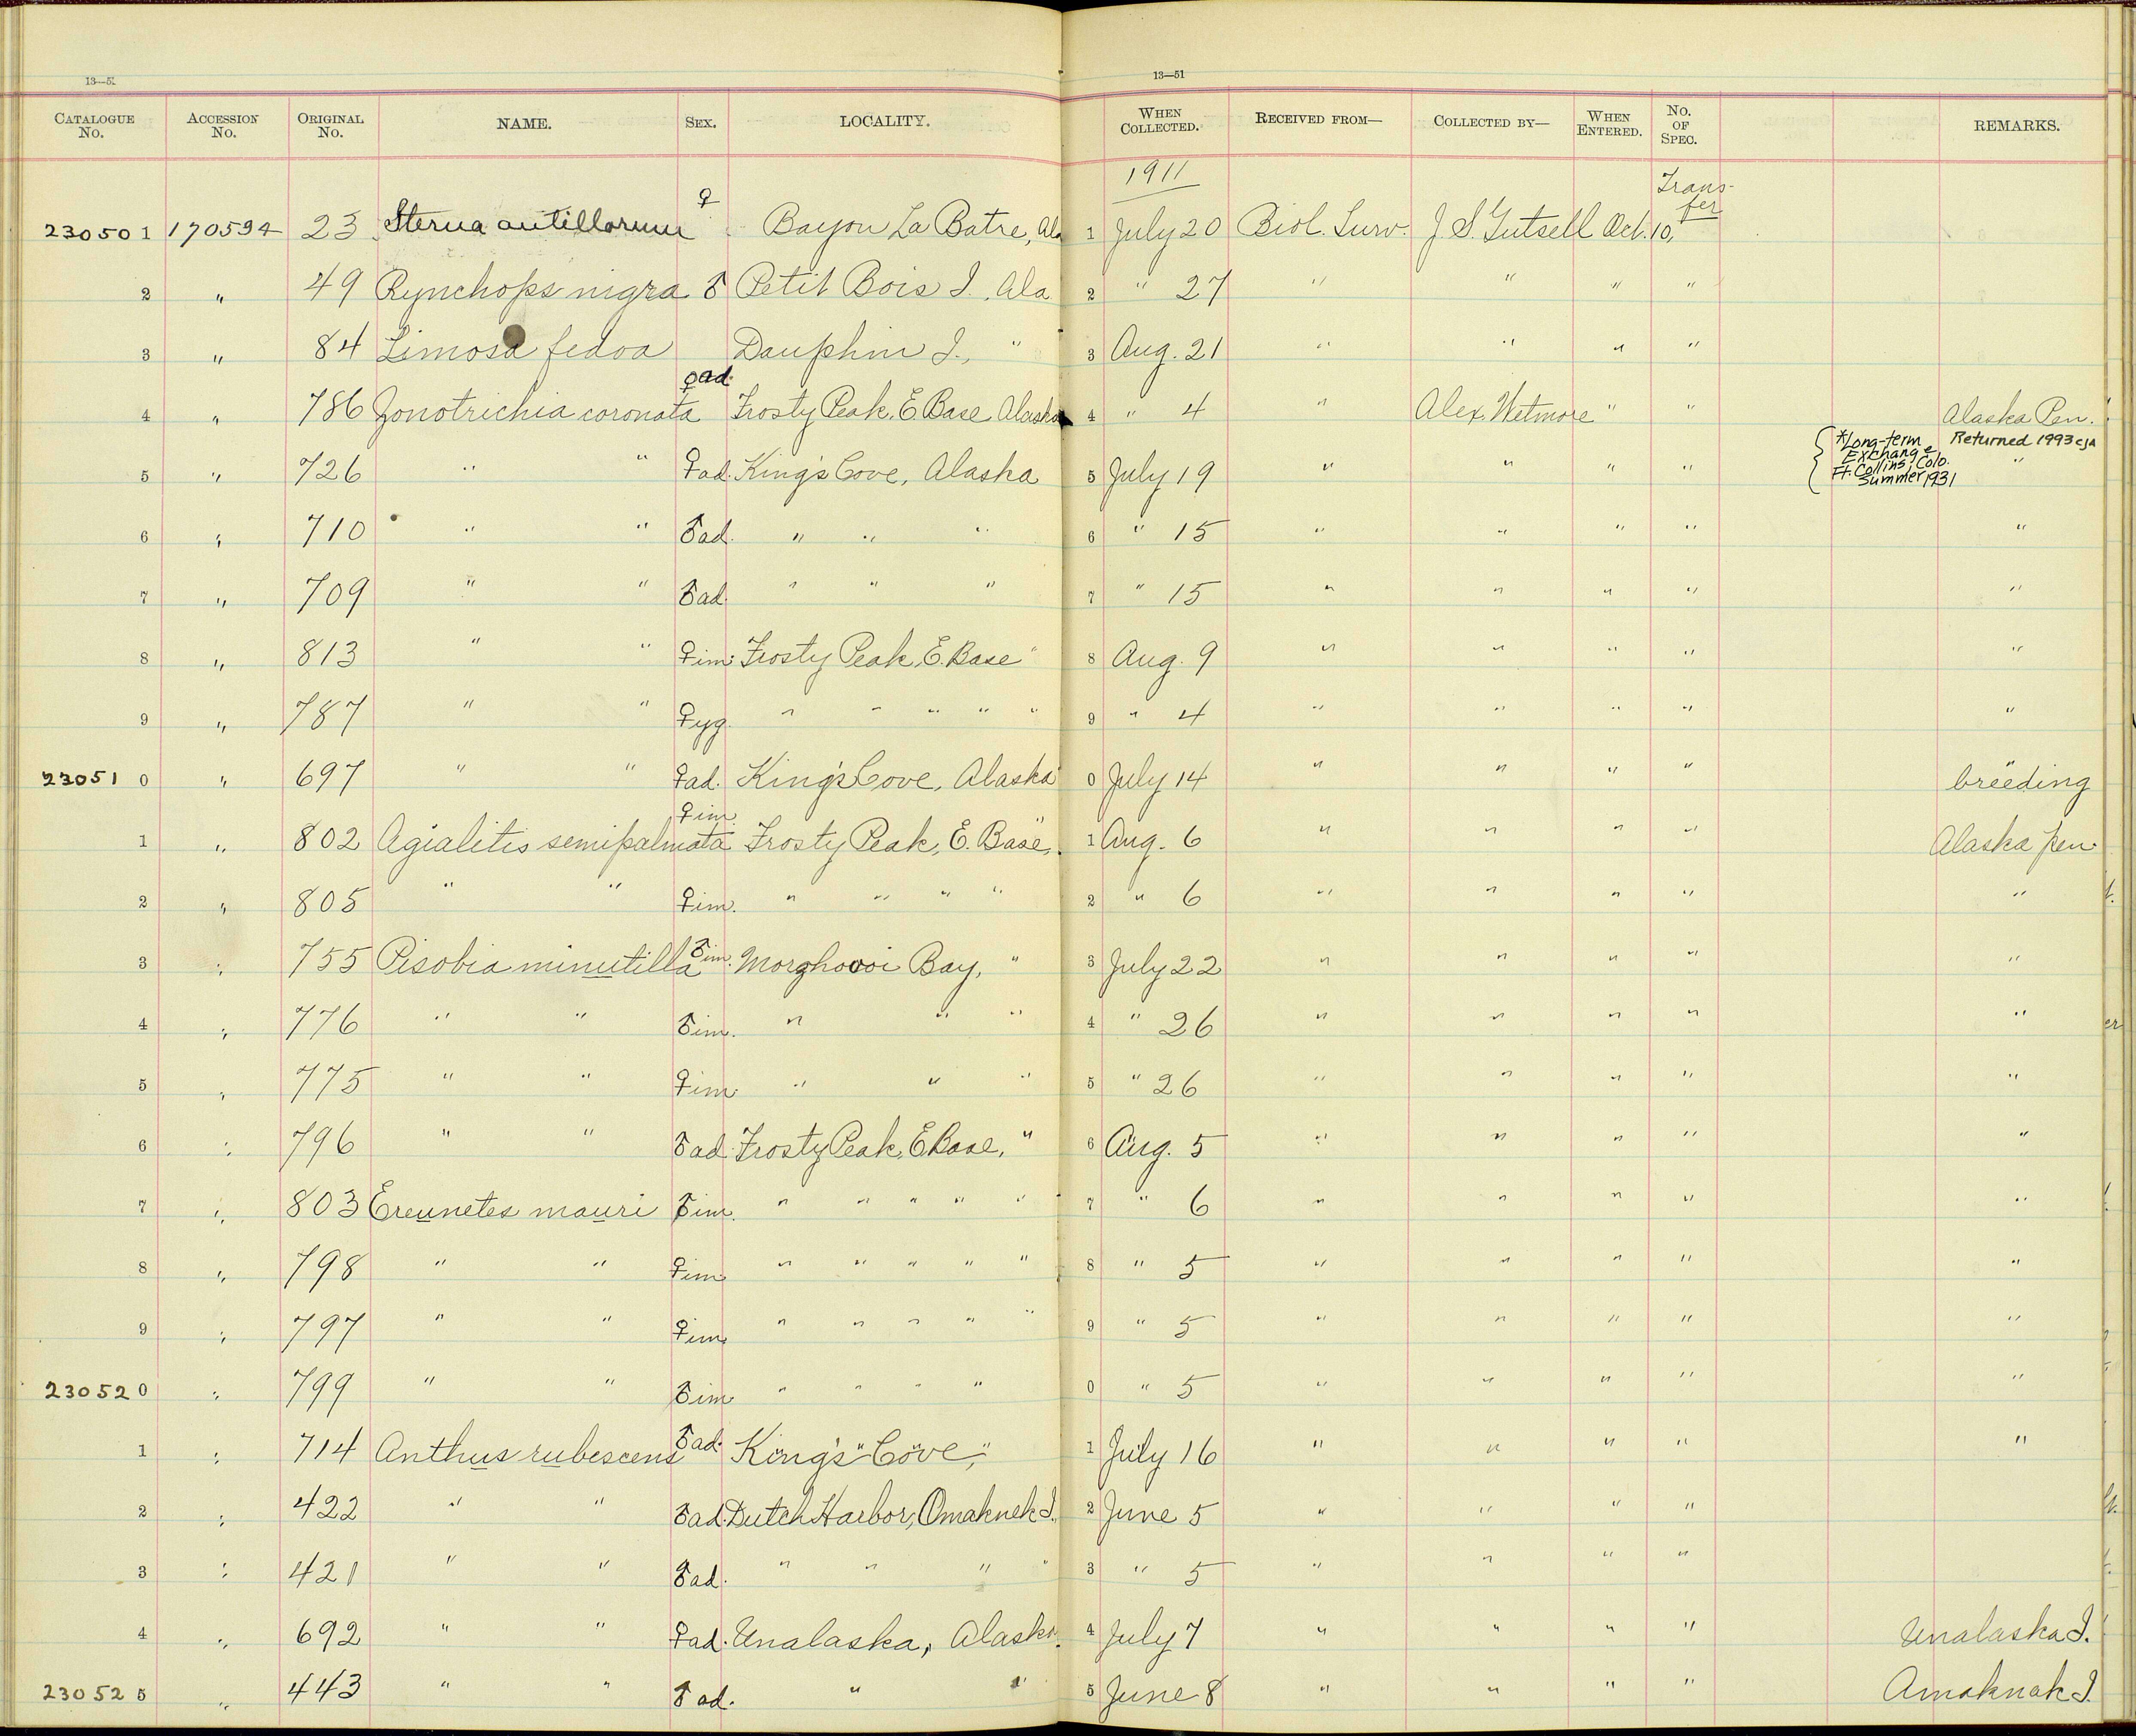 13—51
13—51
CATALOGUE No. ACCESSION No. ORIGINAL No. NAME. SEX. LOCALITY. WHEN COLLECTED. RECEIVED FROM— COLLECTED BY— WHEN ENTERED. No. OF SPEC. REMARKS.
1911
230501 170594 23 Sterna antillarum ♀ Bayou La Batre, Ala 1 July 20 Biol. Surv. J. S. Gutsell Oct. 10, Transfer
2 " 49 Rynchops nigra ♂ Petit Bois I., Ala 2 " 27 " " " "
3 " 84 Limosa fedoa Dauphin I., " 3 Aug. 21 " " " "
4 " 786 Zonotrichia coronata ♀ad. Frosty Peak, E. Base Alaska 4 " 4 " Alex. Wetmore " " Alaska Pen.
5 " 726 " " ♀ad. King's Cove, Alaska 5 July 19 " " " " { *Long-term Exchange Ft. Collins, Colo. Summer 1931 Returned 1993 CJA "
6 " 710 " " ♂ad. " " " 6 " 15 " " " " "
7 " 709 " " ♂ad. " " " 7 " 15 " " " " "
8 " 813 " " ♀im. Frosty Peak, E. Base " 8 Aug. 9 " " " " "
9 " 787 " " ♀yg. " " " " " 9 " 4 " " " " "
230510 " 697 " " ♀ad. King's Cove, Alaska 0 July 14 " " " " " breeding
1 " 802 Agialitis semipalmata ♀im. Frosty Peak, E. Base, " 1 Aug. 6 " " " " Alaska Pen.
2 " 805 " " ♀im. " " " " 2 " 6 " " " " "
3 " 755 Pisobia minutilla ♂im. Morzhovoi Bay, " 3 July 22 " " " " "
4 " 776 " " ♂im. " " " 4 " 26 " " " " "
5 " 775 " " ♀im. " " " 5 " 26 " " " " "
6 " 796 " " ♂ad. Frosty Peak, E. Base, " 6 Aug. 5 " " " " "
7 " 803 Ereunetes mauri ♂im. " " " " " 7 " 6 " " " " "
8 " 798 " " ♀im. " " " " " 8 " 5 " " " " "
9 " 797 " " ♀im. " " " " " 9 " 5 " " " " "
230520 " 799 " " ♂im. " " " " 0 " 5 " " " " "
1 " 714 Anthus rubescens ♂ad. King's Cove, " 1 July 16 " " " " "
2 " 422 " " ♂ad. Dutch Harbor, Omaknek I. 2 June 5 " " " "
3 " 421 " " ♂ad. " " " " 3 " 5 " " " "
4 " 692 " " ♀ad. Unalaska, Alaska. 4 July 7 " " " " Unalaska I.
230525 " 443 " " ♂ad. " " 5 June 8 " " " " Amaknak I.